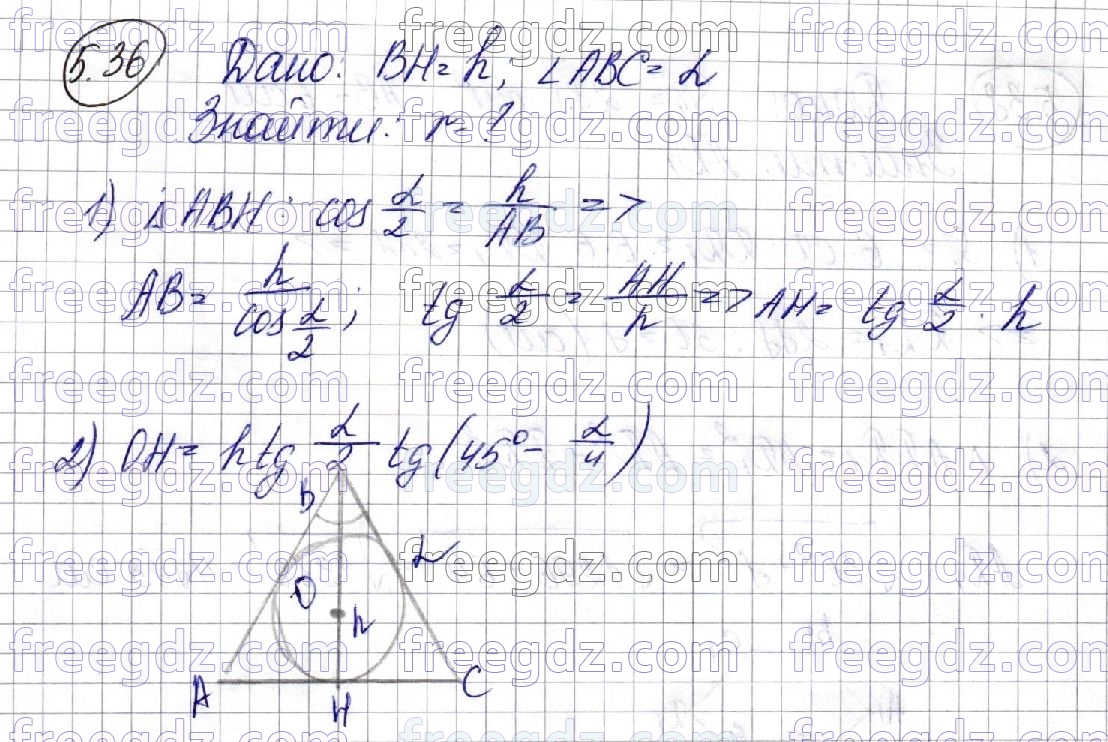 5.36 Дано: BH = h; ∠ABC = α
Знайти: r = ?
1) ΔABH: cos α/2 = h/AB =>
AB = h/cos α/2; tg α/2 = AH/h => AH = tg α/2 · h
2) OH = h tg α/2 tg(45° - α/4)
B
α
O
h
A H C
freegdz.com